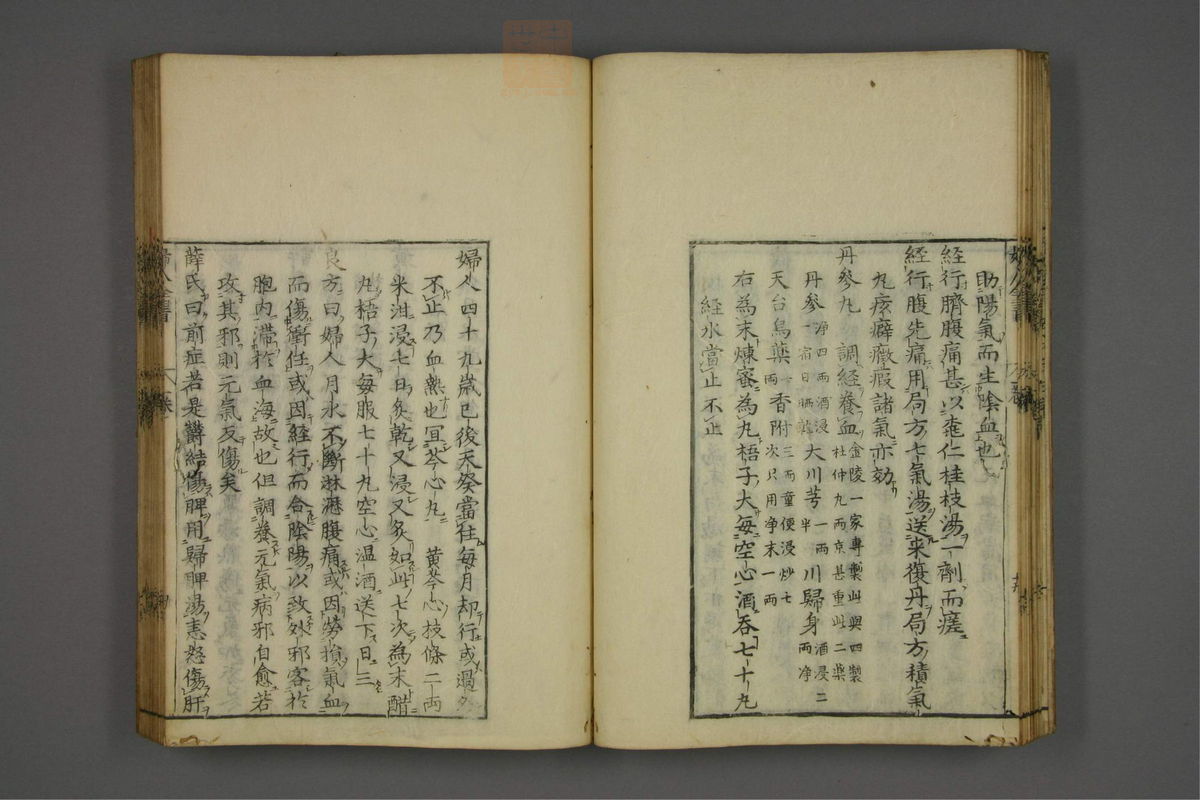 助陽氣而生陰血也
経行臍腹痛甚以桃仁桂枝湯一劑而瘥
経行腹先痛用局方七氣湯送来復丹局方積氣
丸痃癖癥瘕諸氣亦効
丹參丸 調経養血金陵一家專製此與四製
杜仲丸兩京甚重此二藥
丹參淨四兩酒浸
一宿日晒乾大川芎一兩
半川歸身酒浸二
兩淨
天台烏藥一
兩香附三兩童便浸炒七
次只用淨末一兩
右為末煉蜜為丸梧子大每空心酒吞七十丸
経水當止不止
婦人四十九歲已後天癸當住每月却行或過多
不止乃血熱也宜芩心丸 黃芩心枝條二兩
米泔浸七日炙乾又浸又炙如此七次為末醋
丸梧子大每服七十丸空心温酒送下日三
良方曰婦人月水不斷淋瀝腹痛或因勞損氣血
而傷衝任或因経行而合陰陽以致外邪客於
胞内滯於血海故也但調養元氣病邪自愈若
攻其邪則元氣反傷矣
薛氏曰前症若是欝結傷脾用歸脾湯恚怒傷肝